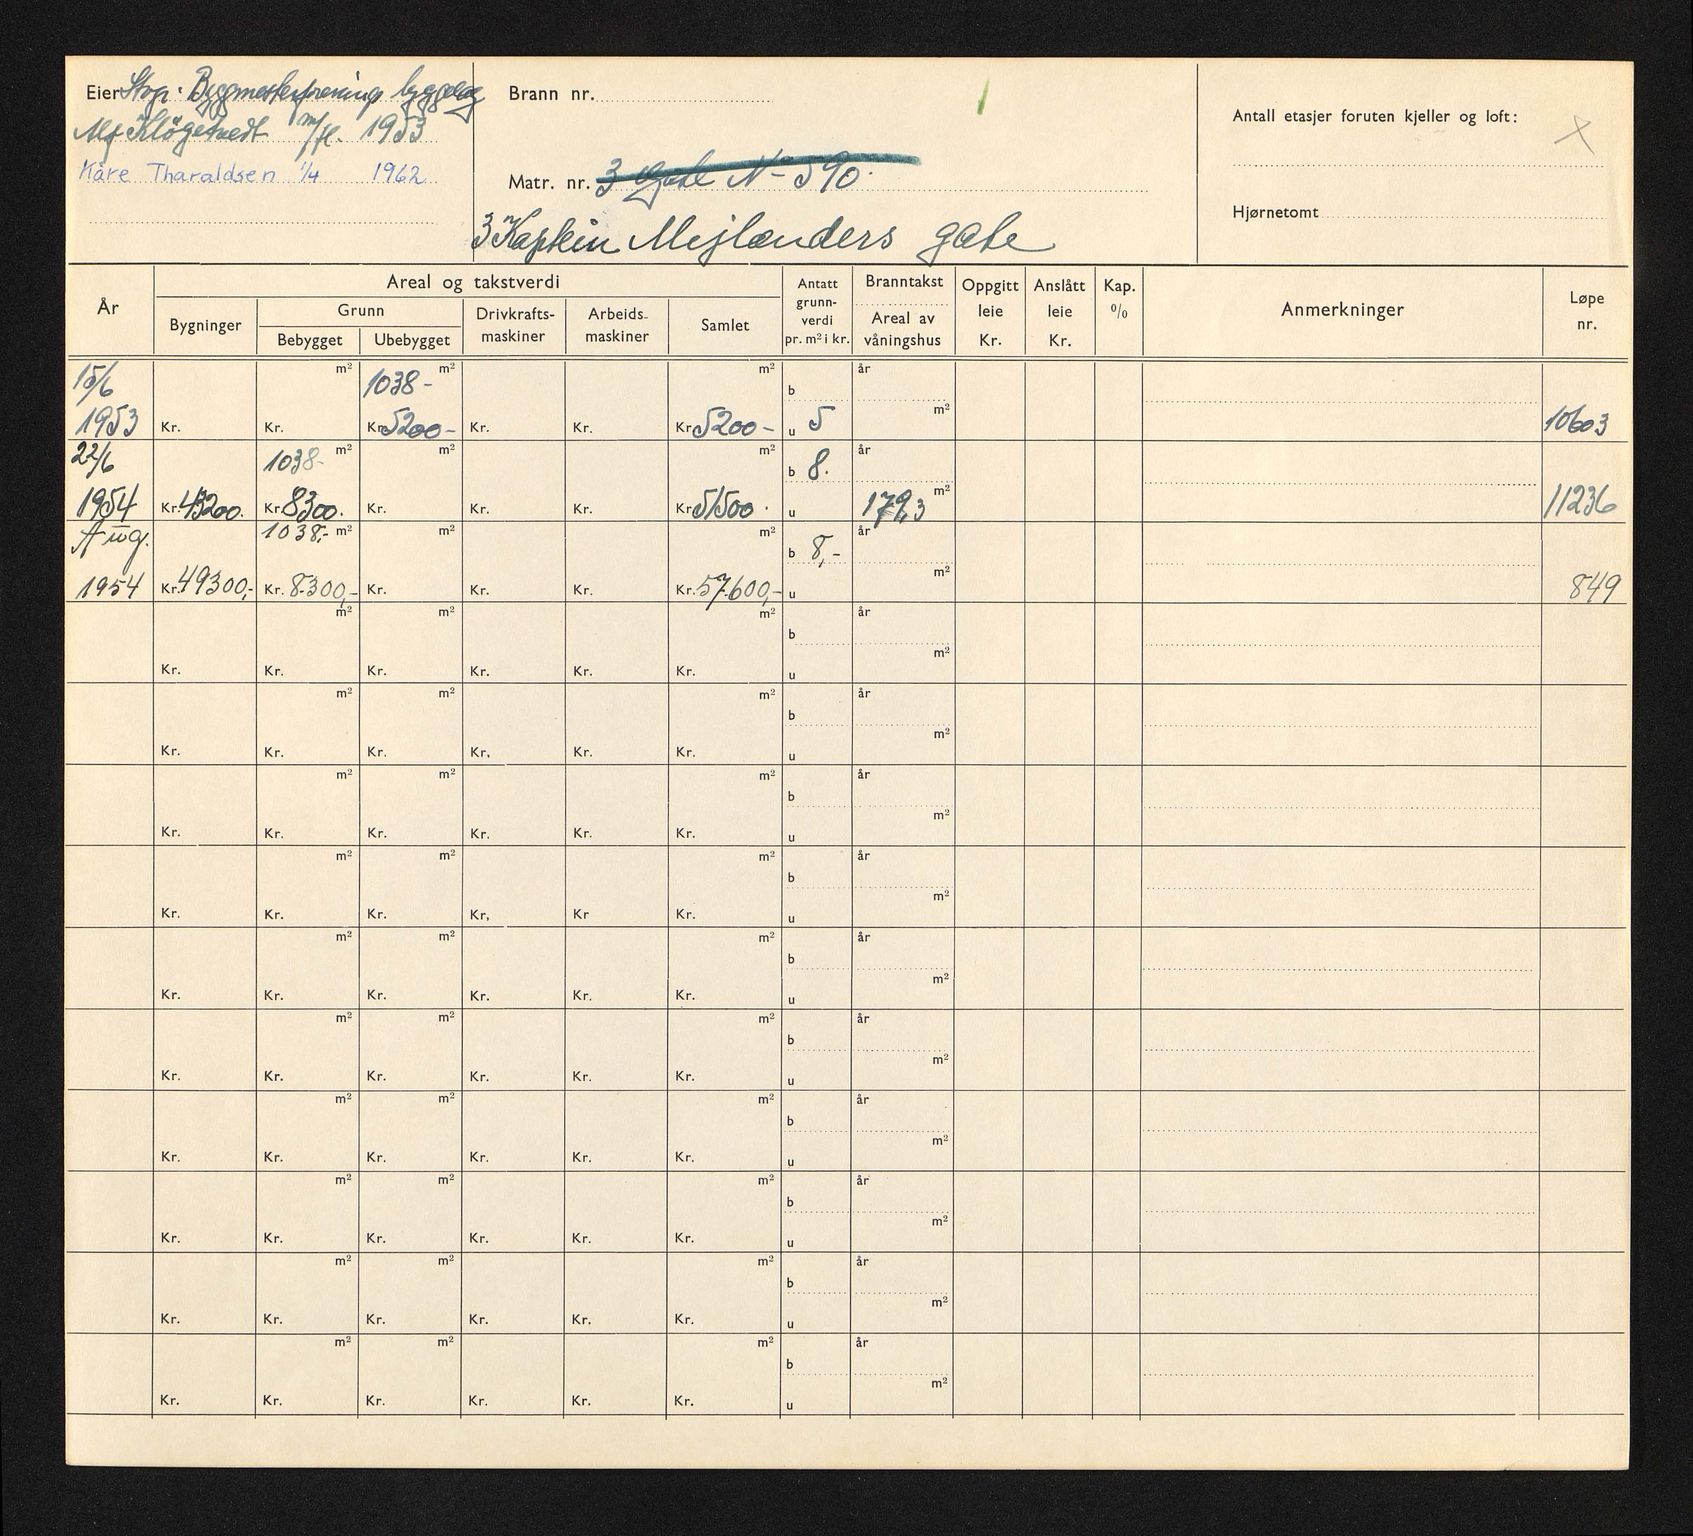 Eier Stvgr. Bygmesterforening byggelag
Alf Kløgetvedt m/fl. 1953
Kåre Tharaldsen 1/4 1962
Brann nr.
Matr. nr. 3 Gate No 590.
3 Kaptein Mejlænders gate
Antall etasjer foruten kjeller og loft:
Hjørnetomt
År
Areal og takstverdi
Bygninger
Grunn
Bebygget Ubebygget
Drivkrafts-
maskiner
Arbeids-
maskiner
Samlet
Antatt
grunn-
verdi
pr. m² i kr.
Branntakst
Areal av
våningshus
Oppgitt
leie
Kr.
Anslått
leie
Kr.
Kap.
%
Anmerkninger
Løpe
nr.
15/6 m² 1038- m² m² b år
1953 Kr. Kr. Kr. 5200- Kr. Kr. Kr. 5200- u 5 m² 10603
22/6 1038- m² m² m² b 8. år
1954 Kr. 43200. Kr. 8300. Kr. Kr. Kr. Kr. 51500. u 179,3 m² 11236
Aug. 1038,- m² m² m² b 8,- år
1954 Kr. 49300,- Kr. 8.300,- Kr. Kr. Kr. Kr. 57.600,- u m² 849
m² m² m² b år
Kr. Kr. Kr. Kr. Kr. Kr. u m²
m² m² m² b år
Kr. Kr. Kr. Kr. Kr. Kr. u m²
m² m² m² b år
Kr. Kr. Kr. Kr. Kr. Kr. u m²
m² m² m² b år
Kr. Kr. Kr. Kr, Kr Kr. u m²
m² m² m² b år
Kr. Kr. Kr. Kr. Kr. Kr. u m²
m² m² m² b år
Kr. Kr. Kr. Kr. Kr. Kr. u m²
m² m² m² b år
Kr. Kr. Kr. Kr. Kr. Kr. u m²
m² m² m² b år
Kr. Kr. Kr. Kr. Kr. Kr. u m²
m² m² m² b år
Kr. Kr. Kr. Kr. Kr. Kr. u m²
m² m² m² b år
Kr. Kr. Kr. Kr. Kr. Kr. u m²